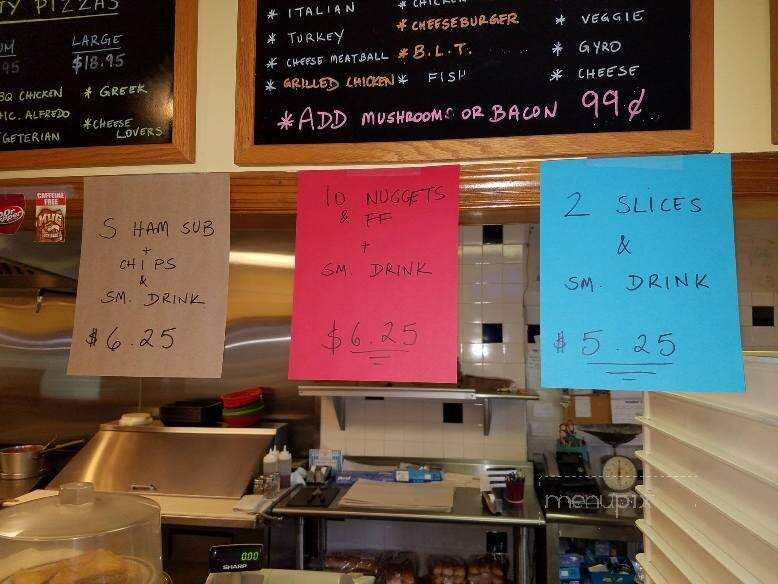 TY PIZZAS
UM LARGE
95 $18.95
BQ CHICKEN * GREEK
HIC. ALFREDO
GETERIAN * CHEESE LOVERS
* ITALIAN
* TURKEY
* CHEESE MEATBALL
* GRILLED CHICKEN
* CHICKEN
* CHEESEBURGER
* B.L.T.
* FISH
* VEGGIE
* GYRO
* CHEESE
* ADD MUSHROOMS OR BACON 99¢
Dr Pepper
CAFFEINE
FREE
MUG
S HAM SUB
+
CHIPS
&
SM. DRINK
$6.25
10 NUGGETS
& FF
+
SM. DRINK
$6.25
2 SLICES
&
SM. DRINK
$5.25
0.00
SHARP
menupix